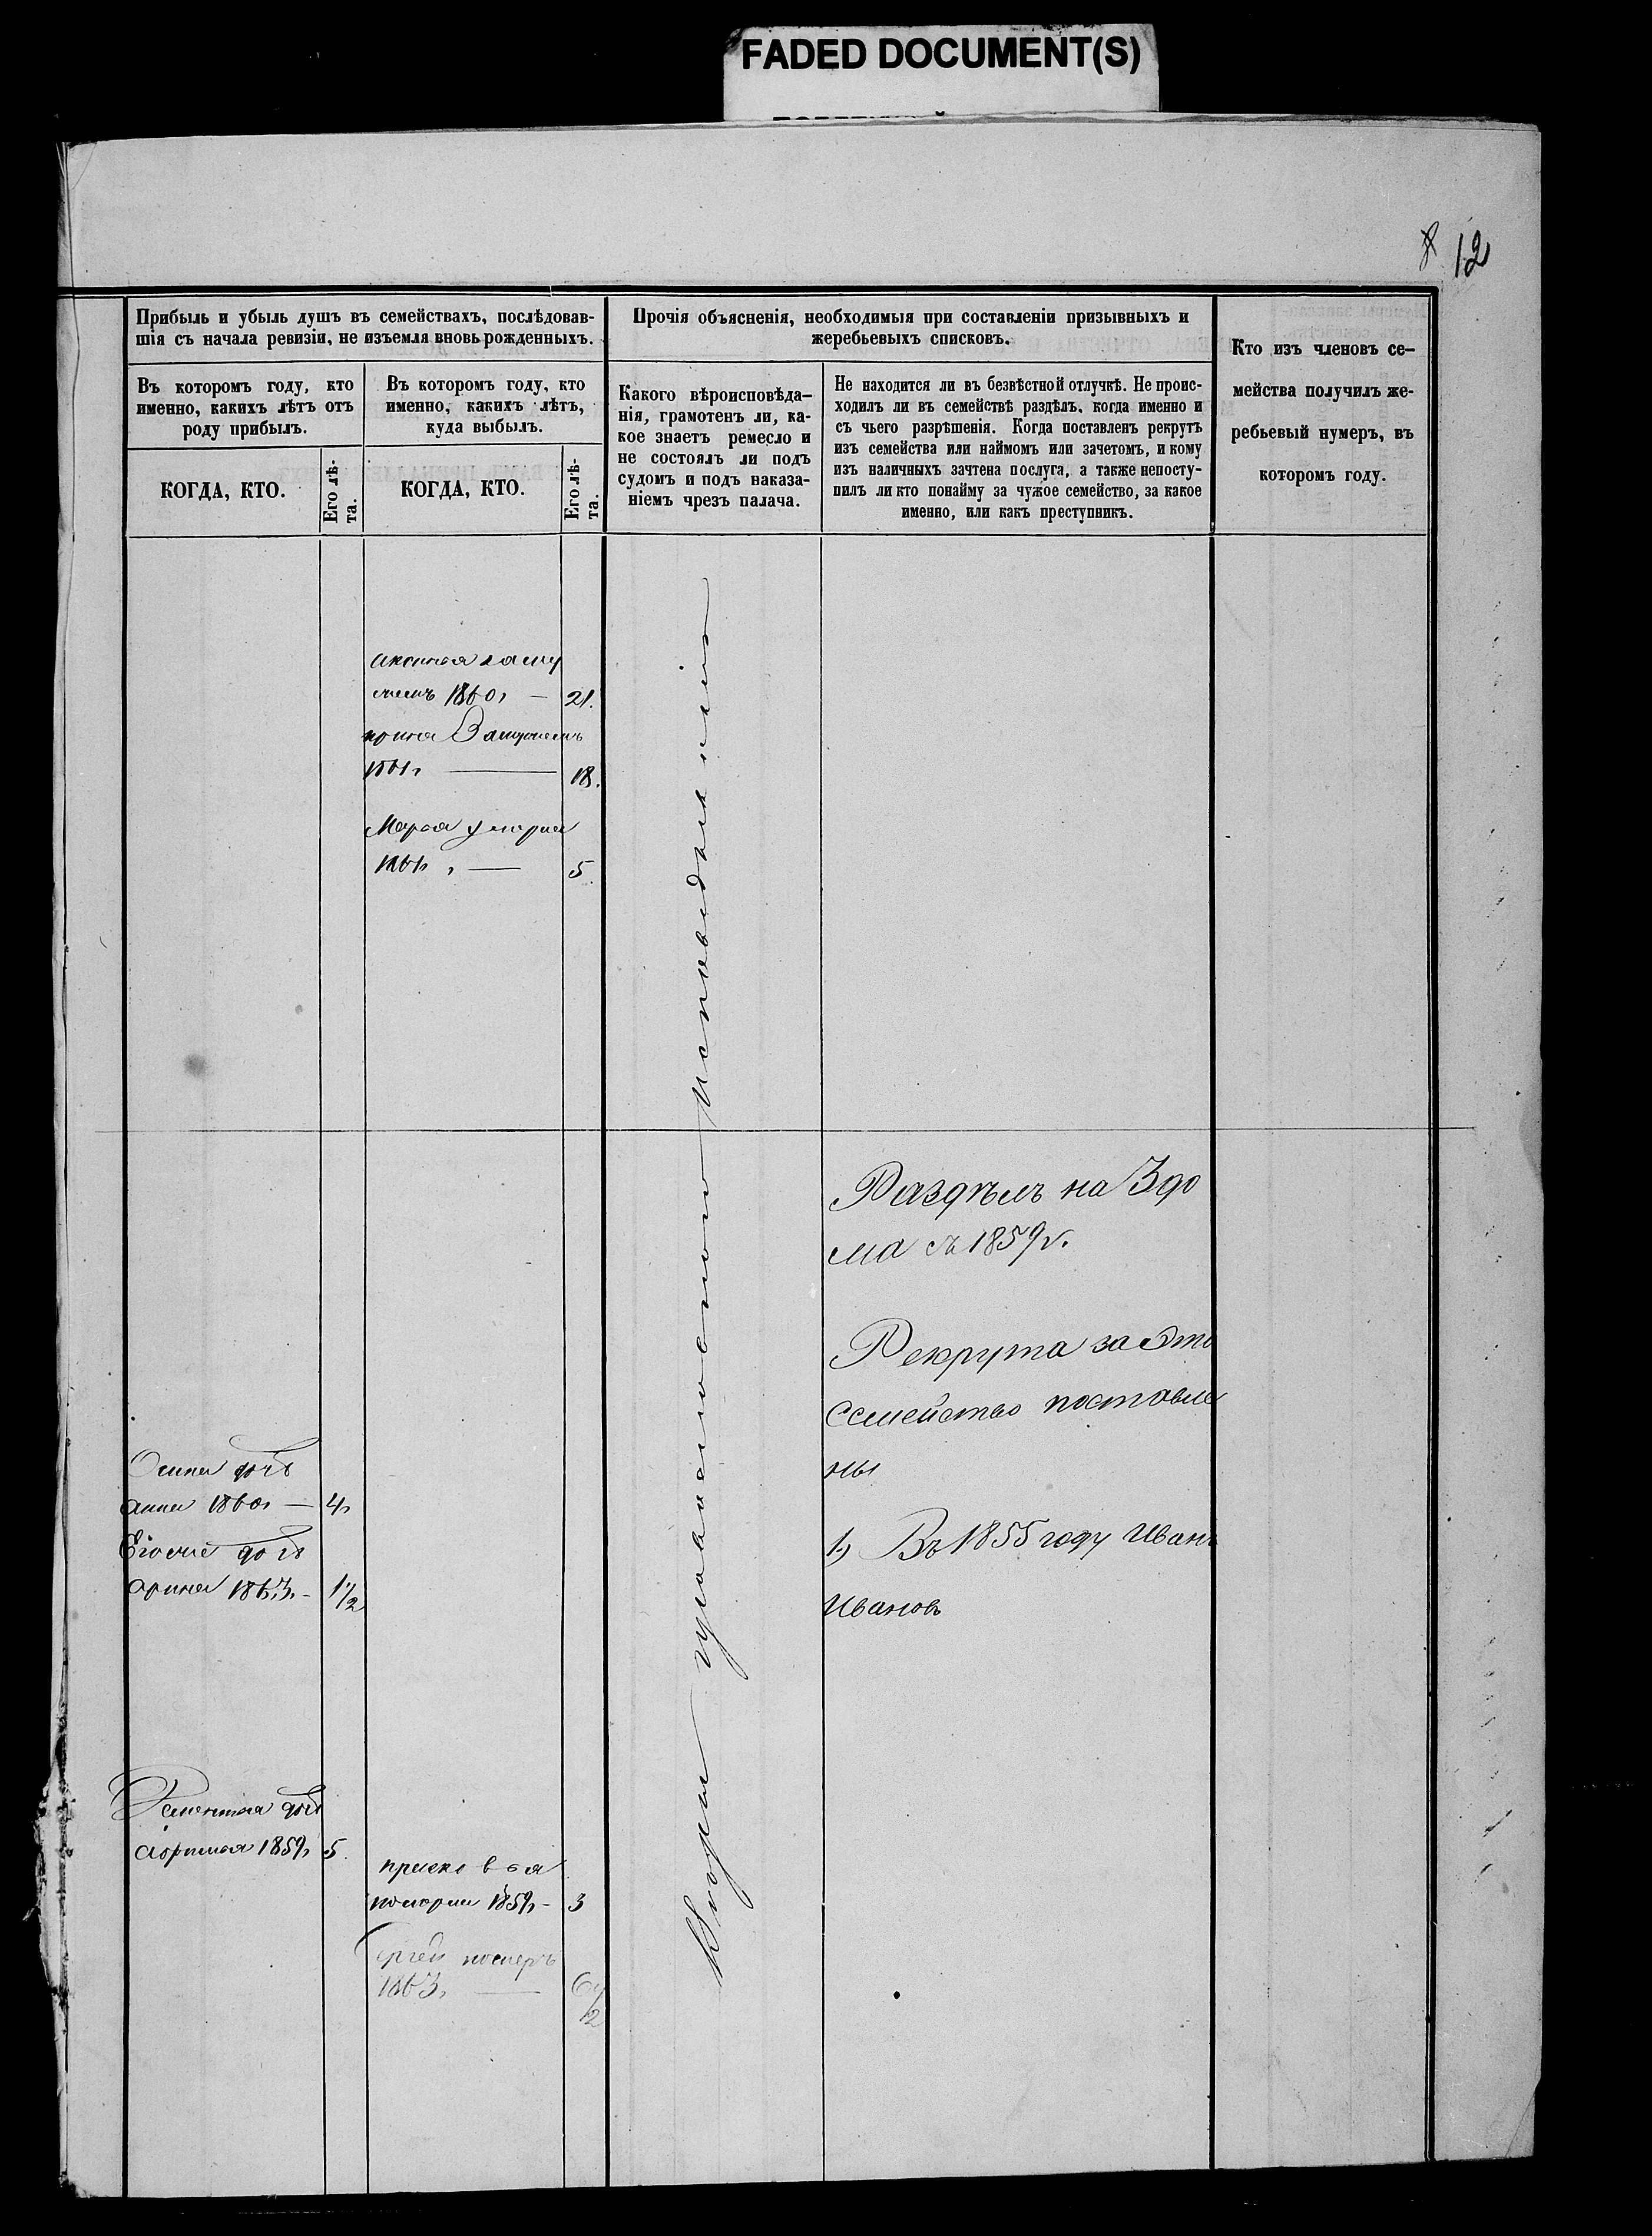 FADED DOCUMENT(S)
12
Прибыль и убыль душъ въ семействахъ, послѣдовав-
шія съ начала ревизіи, не изъемля вновь рожденныхъ.
Въ которомъ году, кто
именно, какихъ лѣтъ отъ
роду прибылъ.
КОГДА, КТО.
Его лѣ-
та.
Въ которомъ году, кто
именно, какихъ лѣтъ,
куда выбылъ.
КОГДА, КТО.
Его лѣ-
та.
Прочія объясненія, необходимыя при составленіи призывныхъ и
жеребьевыхъ списковъ.
Какого вѣроисповѣда-
нія, грамотенъ ли, ка-
кое знаетъ ремесло и
не состоялъ ли подъ
судомъ и подъ наказа-
ніемъ чрезъ палача.
Не находится ли въ безвѣстной отлучкѣ. Не проис-
ходилъ ли въ семействѣ раздѣлъ, когда именно и
съ чьего разрѣшенія. Когда поставленъ рекрутъ
изъ семейства или наймомъ или зачетомъ, и кому
изъ наличныхъ зачтена послуга, а также непосту-
пилъ ли кто понайму за чужое семейство, за какое
именно, или какъ преступникъ.
Кто изъ членовъ се-
мейства получилъ же-
ребьевый нумеръ, въ
которомъ году.
1860, — 21.
1861, — 18.
Марья умерла
1861, — 5.
Осипа дочь
анна 1860, — 4,
дочь
арина 1863, — 1 1/2
дочь
1859, 5.
померла 1859, — 3
померъ
1863, — 6 1/2
исповеданія
Раздѣлъ на 3 до
ма съ 1859 г.
Рекрута за Это
Семейство поставле
ны
1) Въ 1855 году Иванъ
Ивановъ